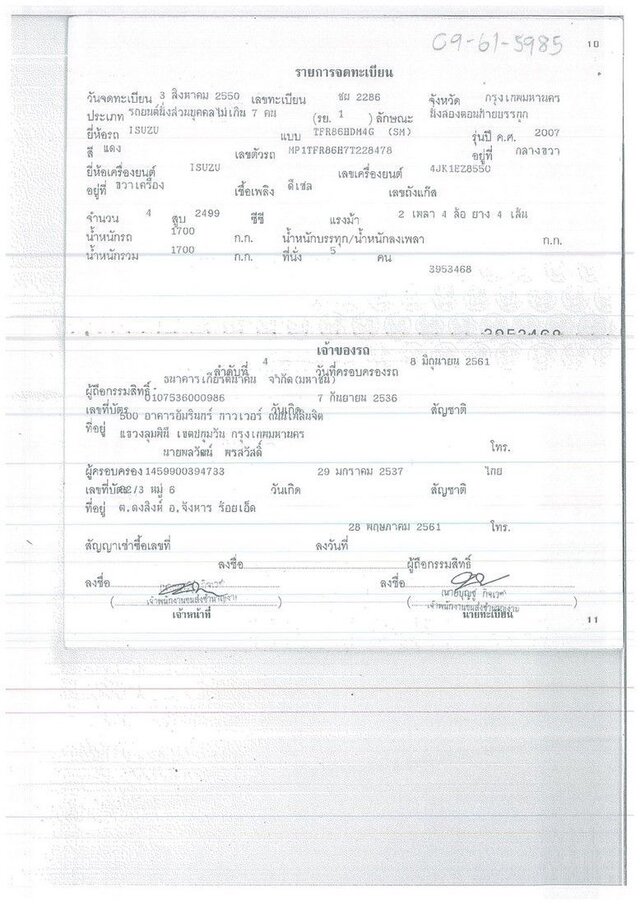 09-61-5985
10
รายการจดทะเบียน
วันจดทะเบียน 3 สิงหาคม 2550 เลขทะเบียน ชม 2286 จังหวัด กรุงเทพมหานคร
ประเภท รถยนต์นั่งส่วนบุคคลไม่เกิน 7 คน (รย. 1 ) ลักษณะ นั่งสองตอนท้ายบรรทุก
ยี่ห้อรถ ISUZU แบบ TFR86HDM4G (SM) รุ่นปี ค.ศ. 2007
สี แดง เลขตัวรถ MP1TFR86H7T228478 อยู่ที่ กลางขวา
ยี่ห้อเครื่องยนต์ ISUZU เลขเครื่องยนต์ 4JK1EZ8550
อยู่ที่ ขวาเครื่อง เชื้อเพลิง ดีเซล เลขถังแก๊ส
จำนวน 4 สูบ 2499 ซีซี แรงม้า 2 เพลา 4 ล้อ ยาง 4 เส้น
น้ำหนักรถ 1700 ก.ก. น้ำหนักบรรทุก/น้ำหนักลงเพลา ก.ก.
น้ำหนักรวม 1700 ก.ก. ที่นั่ง 5 คน
3953468
3953468
เจ้าของรถ
ลำดับที่ 4 วันที่ครอบครองรถ 8 มิถุนายน 2561
ผู้ถือกรรมสิทธิ์ ธนาคารเกียรตินาคิน จำกัด(มหาชน)
เลขที่บัตร 0107536000986 วันเกิด 7 กันยายน 2536 สัญชาติ
ที่อยู่ 500 อาคารอัมรินทร์ ทาวเวอร์ ถนนเพลินจิต
แขวงลุมพินี เขตปทุมวัน กรุงเทพมหานคร
โทร.
ผู้ครอบครอง นายพลวัฒน์ พรสวัสดิ์
เลขที่บัตร 1459900394733 วันเกิด 29 มกราคม 2537 สัญชาติ ไทย
ที่อยู่ 82/3 หมู่ 6
ต.ดงสิงห์ อ.จังหาร ร้อยเอ็ด
โทร.
สัญญาเช่าซื้อเลขที่ ลงวันที่ 28 พฤษภาคม 2561
ลงชื่อ ผู้ถือกรรมสิทธิ์
ลงชื่อ ลงชื่อ
(นายบุญชู กิจเวช)
( เจ้าพนักงานขนส่งชำนาญงาน ) ( เจ้าพนักงานขนส่งชำนาญงาน )
เจ้าหน้าที่ นายทะเบียน
11